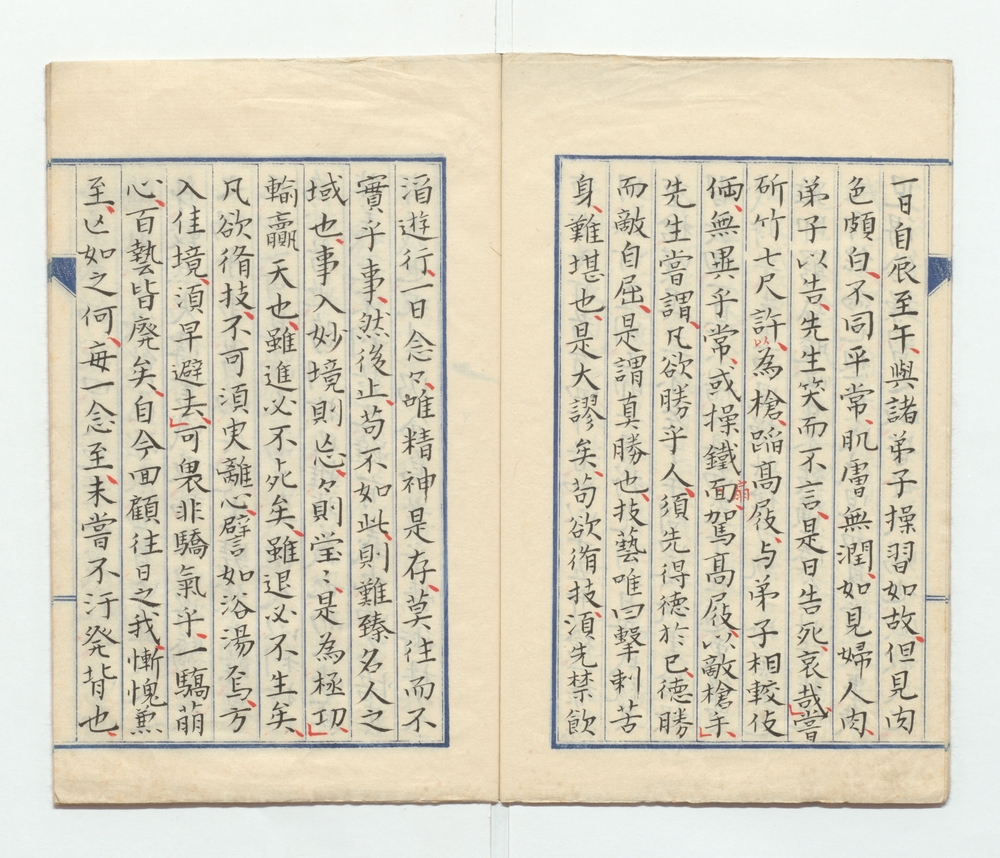 一日自辰至午、與諸弟子操習如故、但見肉
色頗白、不同平常、肌膚無潤、如見婦人肉、
弟子以告、先生笑而不言、是日告死、哀哉」嘗
斫竹七尺許、以為槍、蹈高屐、与弟子相較伎
倆、無異乎常、或操鐵面扇、駕高屐、以敵槍手、」
先生嘗謂、凡欲勝乎人、須先得德於己、德勝
而敵自屈、是謂真勝也、技藝唯曰擊刺、苦
身、難堪也、是大謬矣、苟欲脩技、須先禁飲
滔遊行、一日念々、唯精神是存、莫往而不
實乎事、然後止、苟不如此、則難臻名人之
域也、事入妙境則忘、々則瑩〻、是為極功、」
輸贏天也、雖進必不死矣、雖退必不生矣、
凡欲脩技、不可須臾離心、譬言如浴湯焉、方
入佳境、須早避去、」可畏非驕氣乎、一驕萠
心、百藝皆廢矣、自今回顧往日之我、慚愧兼
至、亡如之何、每一念至、未嘗不汗発背也、